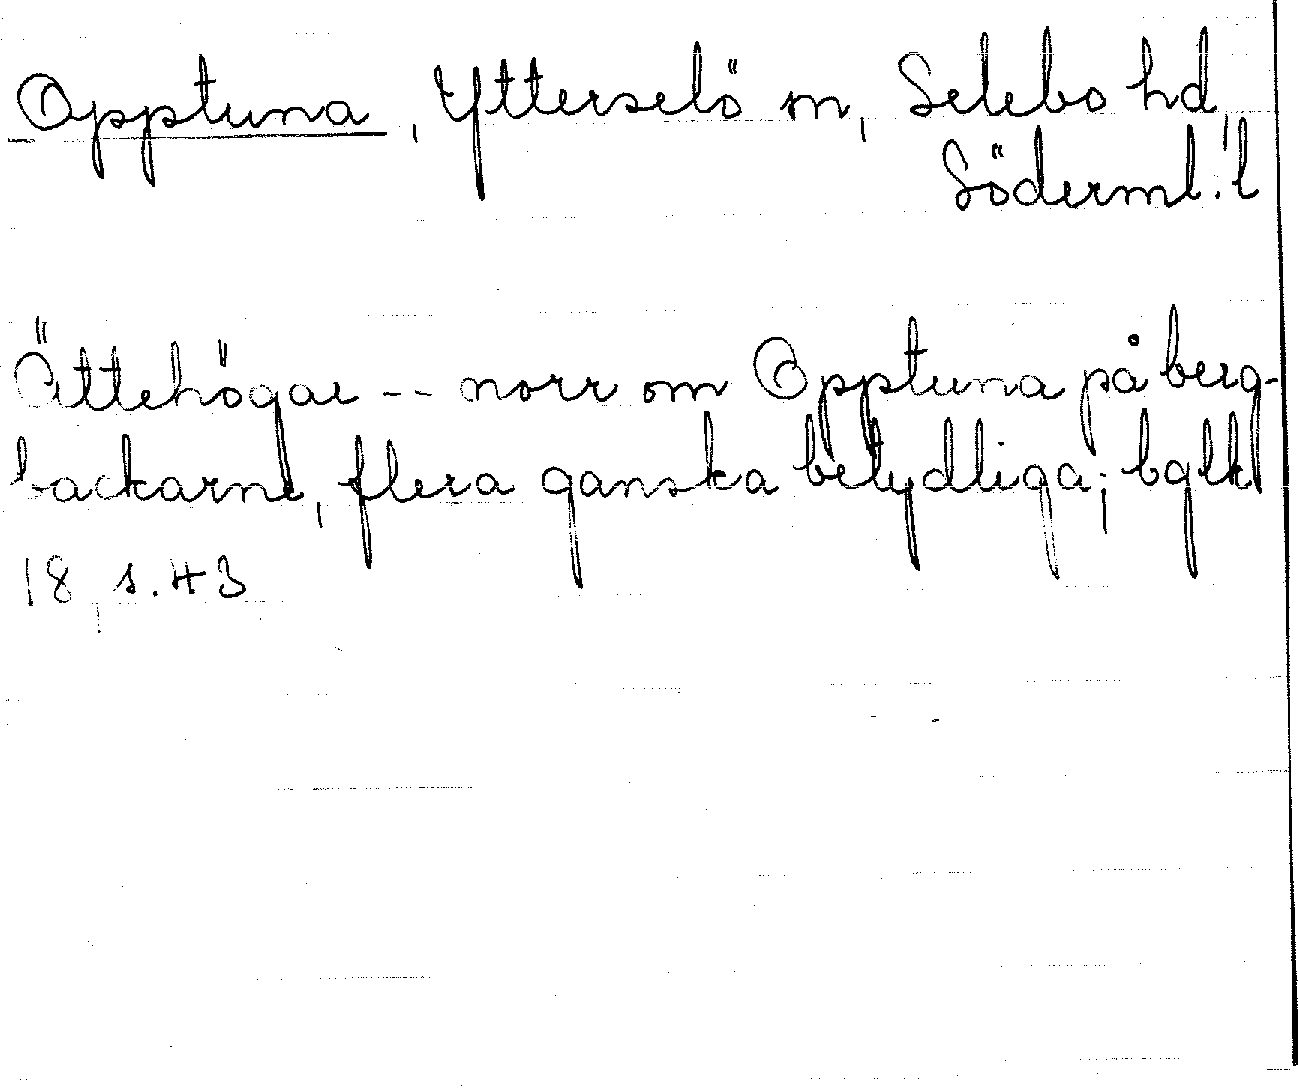 Opptuna, Ytterselö sn, Selebo hd,
Söderml. l
Ättehögar -- norr om Opptuna på berg-
backarne, flera ganska betydliga; bglk
18, s. 43